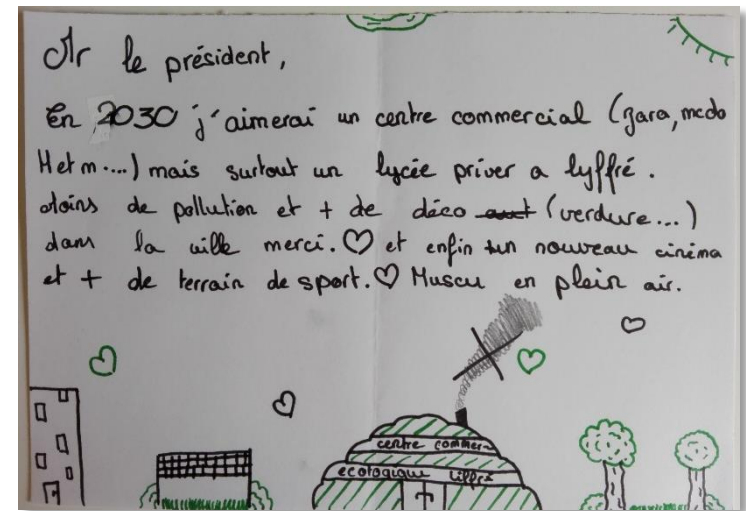 Mr le président,
En 2030 j'aimerai un centre commercial (zara, mcdo
H et m....) mais surtout un lycée priver a lyffré.
Moins de pollution et + de déco (verdure...)
dans la ville merci. ♡ et enfin un nouveau cinéma
et + de terrain de sport. ♡ Muscu en plein air.
centre commer-
ecologique liffré